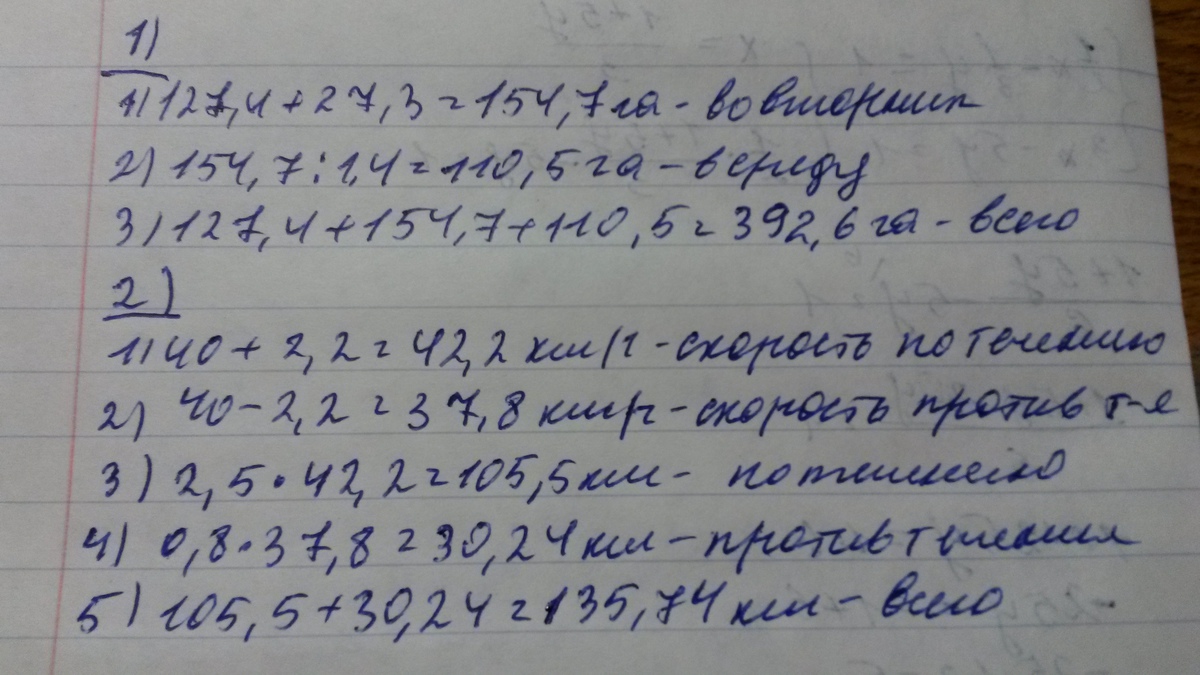 1)
1) 127,4 + 27,3 = 154,7 га - во вторник
2) 154,7 : 1,4 = 110,5 га - в среду
3) 127,4 + 154,7 + 110,5 = 392,6 га - всего
2)
1) 40 + 2,2 = 42,2 км/ч - скорость по течению
2) 40 - 2,2 = 37,8 км/ч - скорость против т-я
3) 2,5 · 42,2 = 105,5 км - по течению
4) 0,8 · 37,8 = 30,24 км - против течения
5) 105,5 + 30,24 = 135,74 км - всего